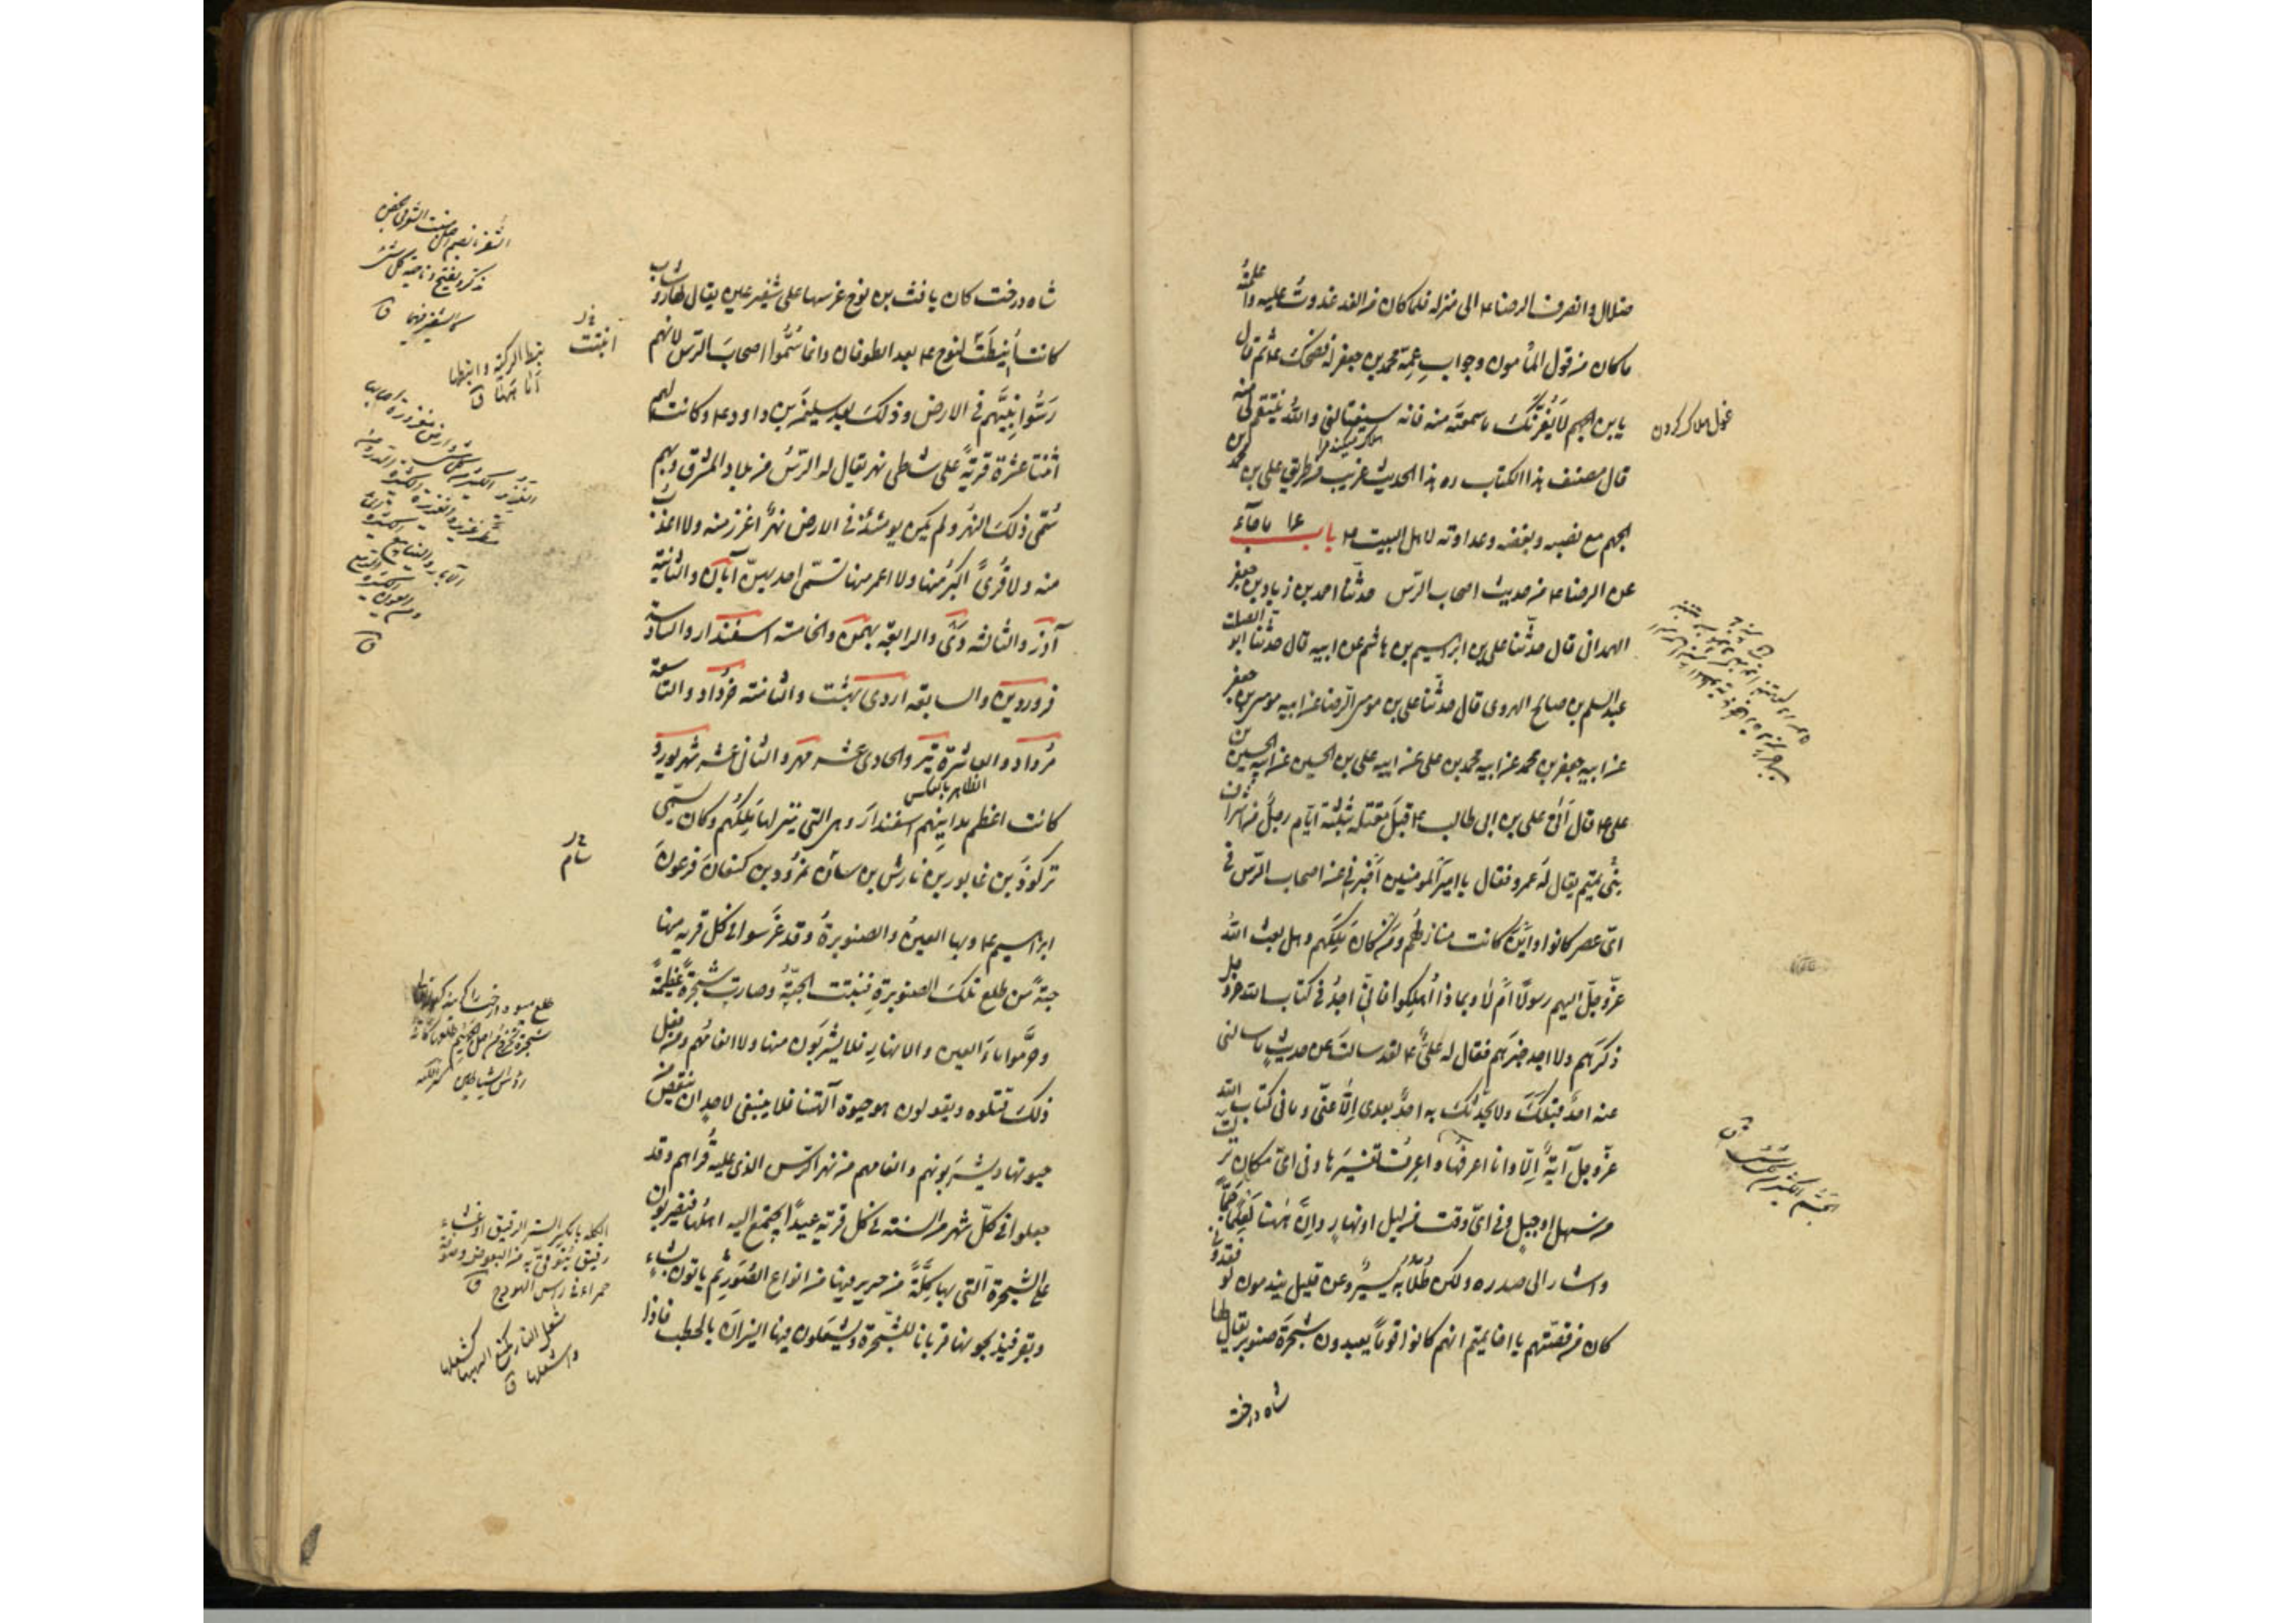 ضلال وانصرف الرضا ع الى منزله فلما كان من الغد غدوت عليه واعلمته
ما كان من قول المأمون وجواب عمه محمد بن جعفر له فضحك ع ثم قال
يا بن الجهم لا يغرنك ما سمعته منه فانه سيغتالني والله ينتقم لي منه
قال مصنف هذا الكتاب ره هذا الحديث غريب من طريق علي بن محمد بن
الجهم مع نصبه وبغضه وعداوته لاهل البيت ع باب ١٦ ما جاء
عن الرضا ع من حديث اصحاب الرس حدثنا احمد بن زياد بن جعفر
الهمداني قال حدثنا علي بن ابراهيم بن هاشم عن ابيه قال حدثنا ابو الصلت
عبد السلم بن صالح الهروي قال حدثنا علي بن موسى الرضا عن ابيه موسى بن جعفر
عن ابيه جعفر بن محمد عن ابيه محمد بن علي عن ابيه علي بن الحسين عن ابيه الحسين بن
علي ع قال اتى علي بن ابي طالب ع قبل مقتله بثلثة ايام رجل من اشراف
بني تميم يقال له عمرو فقال يا امير المومنين اخبرني عن اصحاب الرس في
اي عصر كانوا واين كانت منازلهم ومن كان ملكهم وهل بعث الله
عز وجل اليهم رسولا ام لا وبماذا اهلكوا فاني اجد في كتاب الله عز وجل
ذكرهم ولا اجد خبرهم فقال له علي ع لقد سالت عن حديث ما سالني
عنه احد قبلك ولا يحدثك به احد بعدي الا عني وما في كتاب الله
عز وجل آية الا وانا اعرفها واعرف تفسيرها وفي اي مكان نزلت
من سهل او جبل وفي اي وقت من ليل او نهار وان ههنا لعلما جما
واشار الى صدره ولكن طلابه يسير وعن قليل يندمون لو فقدوني
كان من قصتهم يا اخا تميم انهم كانوا قوما يعبدون شجرة صنوبر يقال لها
شاه درخت
غول هلاك كردن
هلاك ميكند مرا
شاه درخت كان يافث بن نوح غرسها على شفير عين يقال لها روشاب
كانت انبطت لنوح ع بعد الطوفان وانما سموا اصحاب الرس لانهم
رسوا نبيهم في الارض وذلك بعد سليمن بن داود ع وكانت لهم
اثنتا عشرة قرية على شاطى نهر يقال له الرس من بلاد المشرق وبهم
سمي ذلك النهر ولم يكن يومئذ في الارض نهر اغزر منه ولا اعذب
منه ولا قرى اكبر منها ولا اعمر منها تسمى احديهن آبان والثانية
آذر والثالثه دي والرابعة بهمن والخامسة اسفندار والسادسة
فروردين والسابعة اردي بهشت والثامنة خرداد والتاسعة
مرداد والعاشرة تير والحادى عشر مهر والثاني عشر شهريور و
كانت اعظم مداينهم اسفندار وهي التي ينزلها ملكهم وكان يسمى
الظاهر بالعكس
تركوذ بن غابور بن يارش بن سان نمرود بن كنعان فرعون
ابراهيم ع وبها العين والصنوبرة وقد غرسوا في كل قرية منها
حبة من طلع تلك الصنوبرة فنبتت الحبة وصارت شجرة عظيمة
وحرموا ماء العين والانهار فلا يشربون منها ولا انعامهم ومن فعل
ذلك قتلوه ويقولون هو حيوة آلهتنا فلا ينبغي لاحد ان ينقص من
حيوتها ويشربونهم وانعامهم من نهر الرس الذي عليه قراهم وقد
جعلوا في كل شهر من السنة في كل قرية عيدا يجتمع اليه اهلها فيضربون
على الشجرة التي بها كلة من حرير فيها من انواع الصور ثم ياتون بشاء
وبقر فيذبحونها قربانا للشجرة ويشعلون فيها النيران بالحطب فاذا
انبتت
سام
الكلة بالكسر الستر الرقيق او غشاء
رقيق يتوقى به من البعوض وصوفة
حمراء في راس الهودج ق